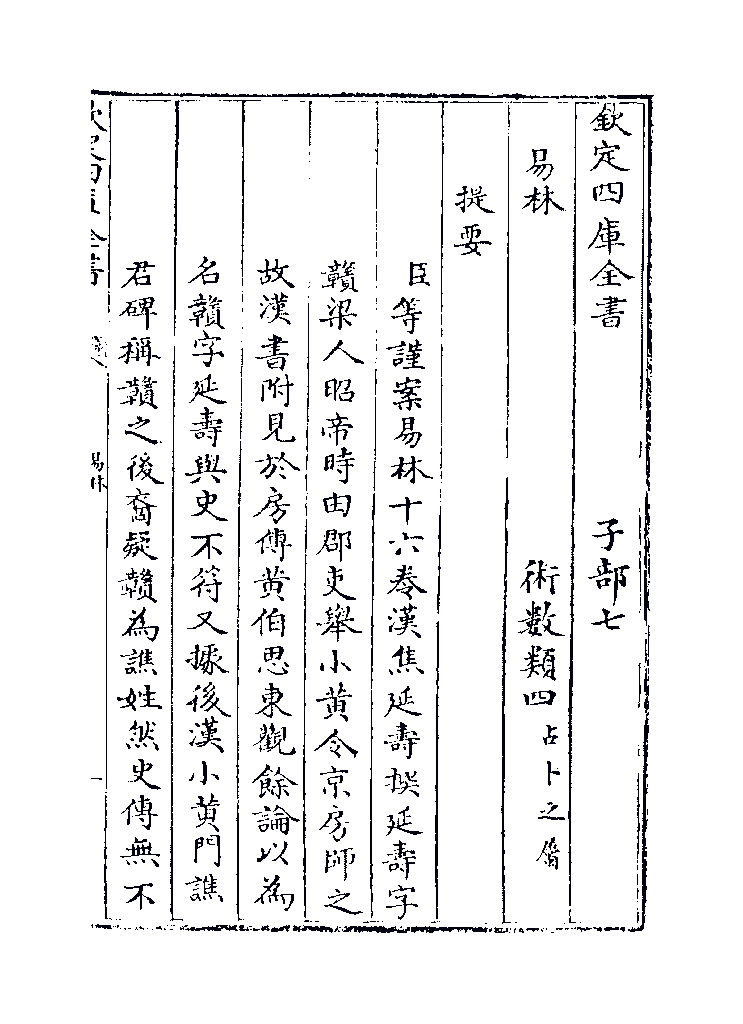 欽定四庫全書 子部七
易林 術數類四占卜之屬
提要
臣等謹案易林十六卷漢焦延壽撰延壽字
贛梁人昭帝時由郡吏舉小黄令京房師之
故漢書附見於房傳黄伯思東觀餘論以為
名贛字延壽與史不符又據後漢小黄門譙
君碑稱贛之後裔疑贛為譙姓然史傳無不
欽定四庫全書
易林
一